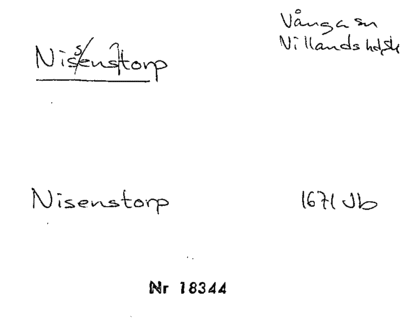 Vånga sn
Villands hd, Sk
Nissenstorp
Nisenstorp 1671 Jb
Nr 18344